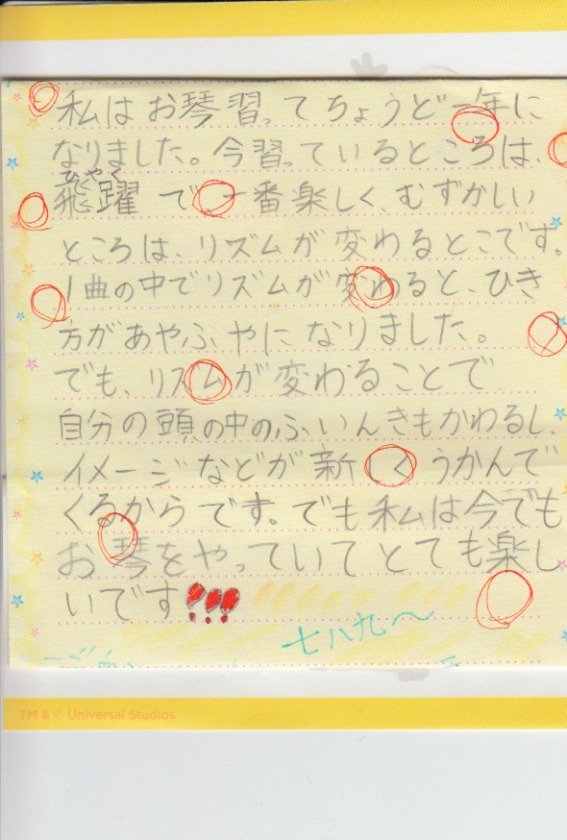 私はお琴習ってちょうど一年に
なりました。今習っているところは、
ひやく
飛躍で一番楽しく、むずかしい
ところは、リズムが変わるとこです。
1曲の中でリズムが変わると、ひき
方があやふやになりました。
でも、リズムが変わることで
自分の頭の中のふいんきもかわるし、
イメージなどが新しくうかんで
くるからです。でも私は今でも
お琴をやっていてとても楽し
いです!!!
七八九〜
TM & © Universal Studios